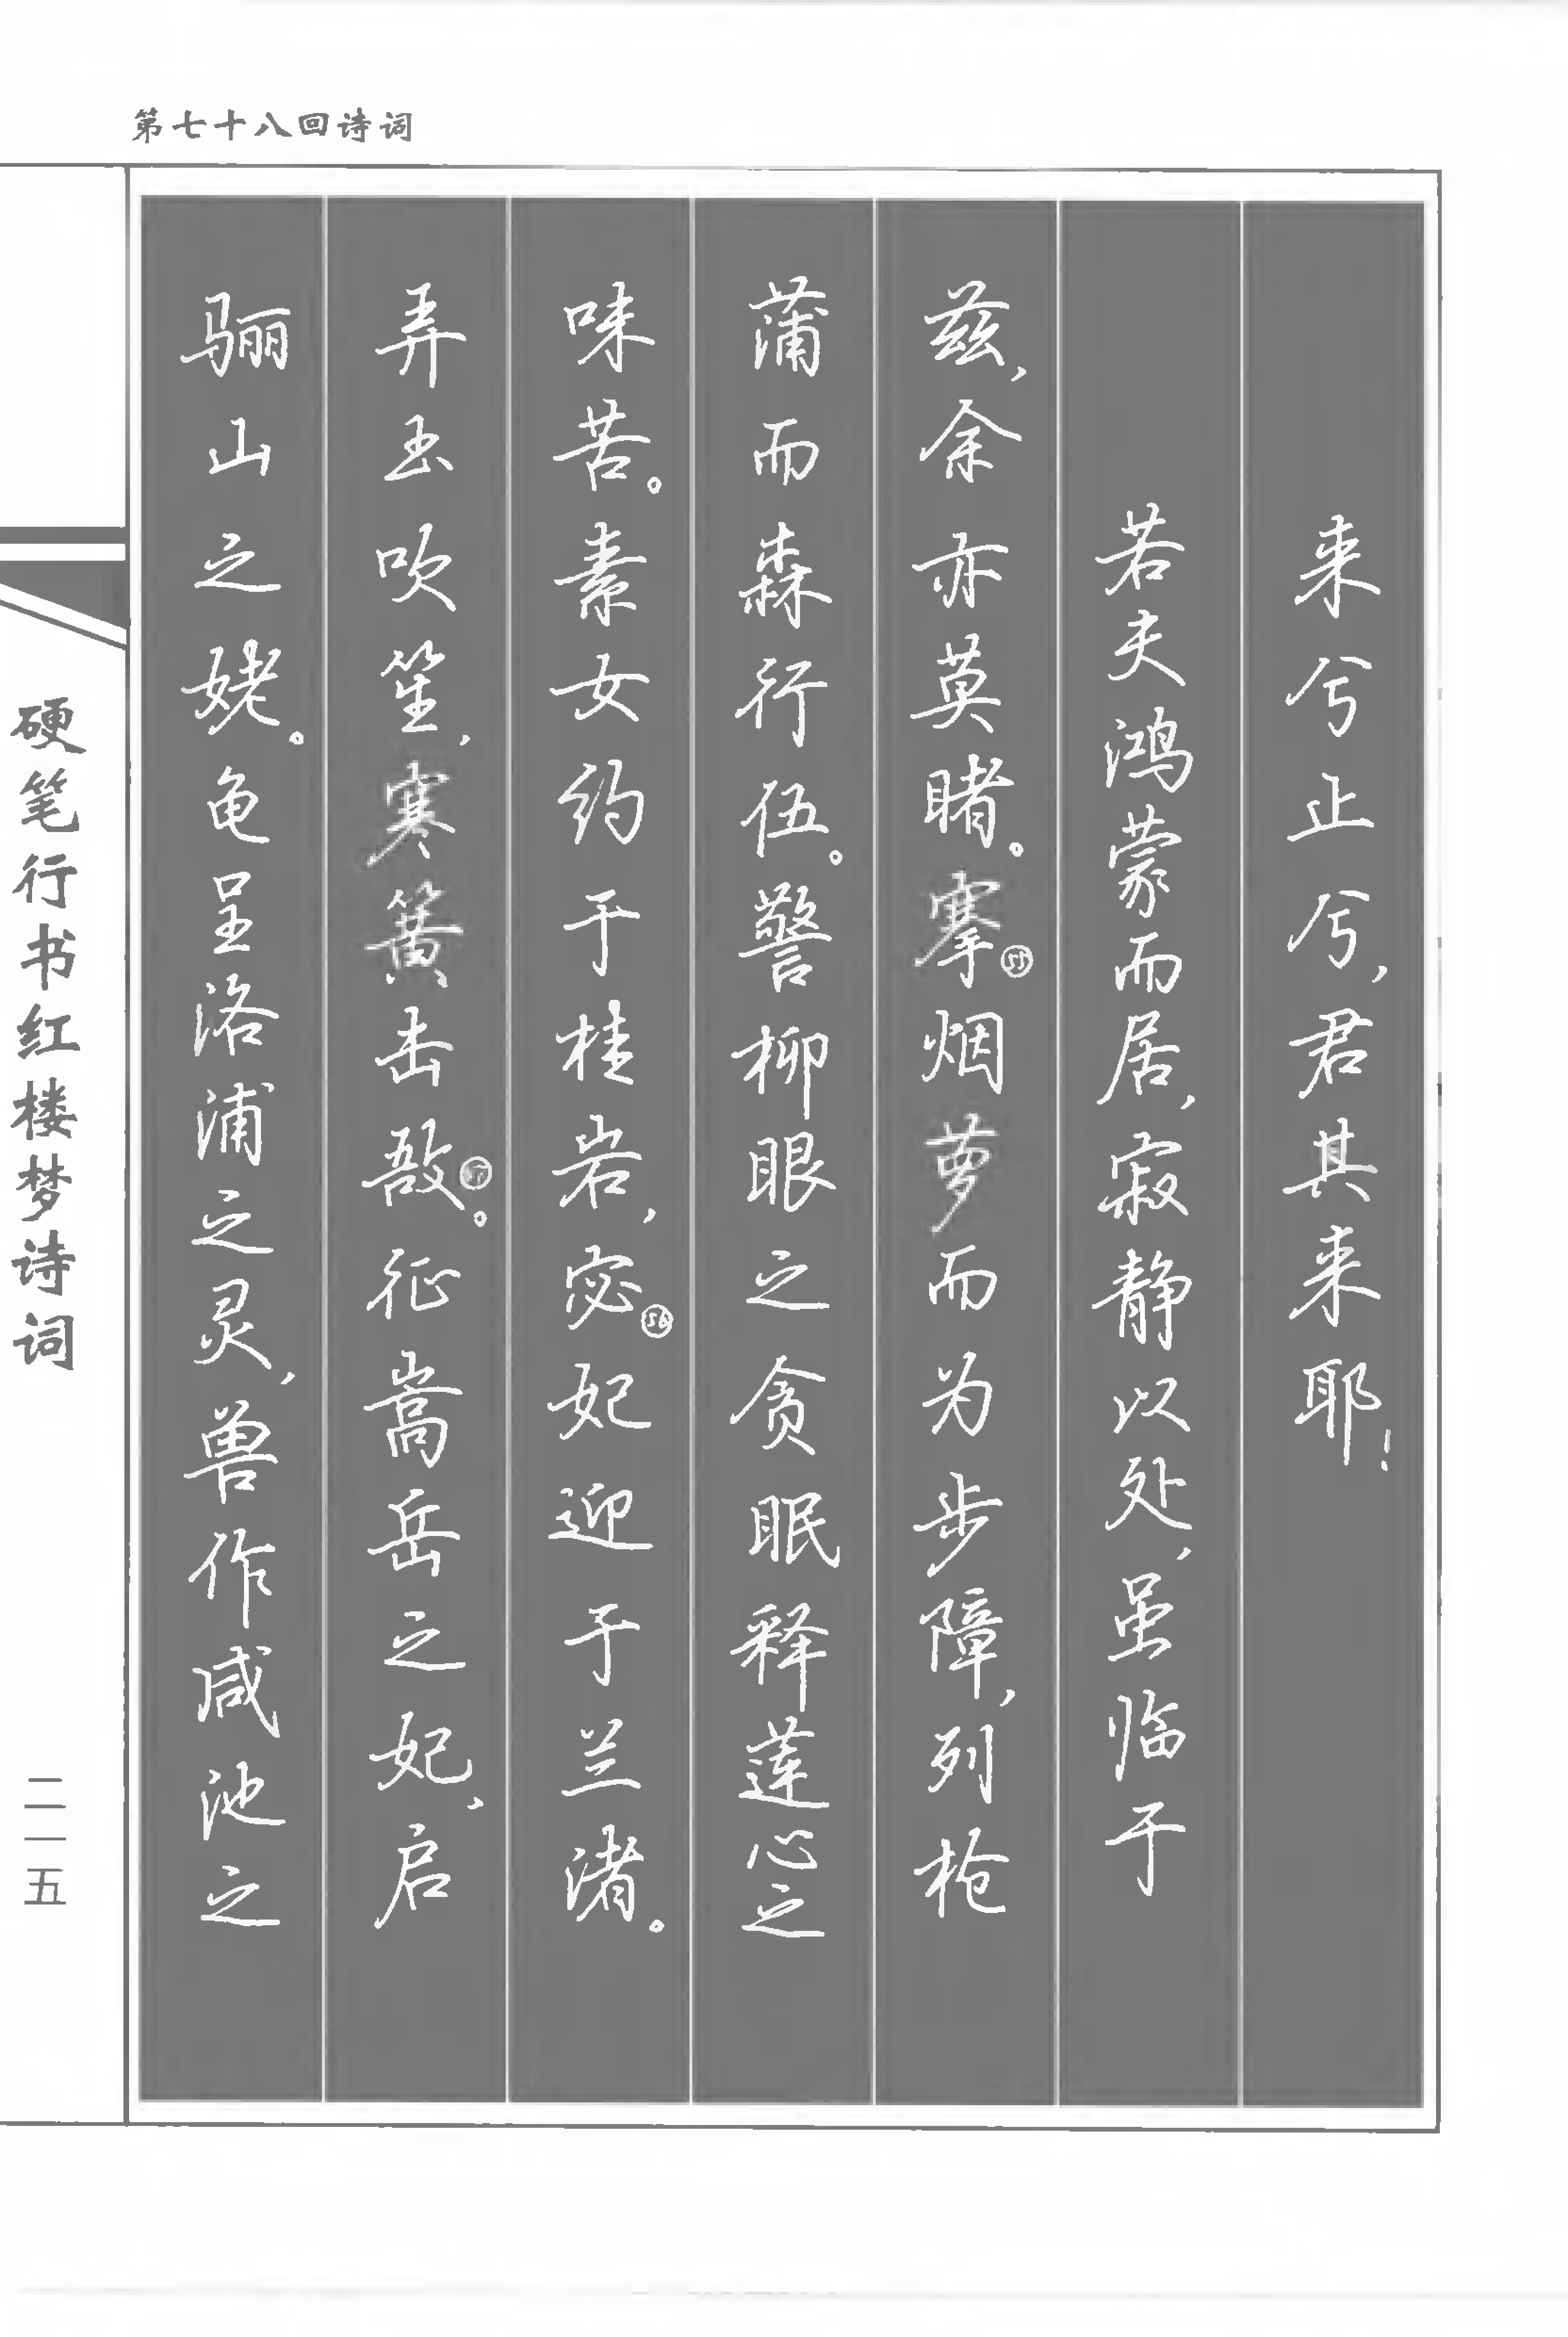 第七十八回诗词
来兮止兮，君其来耶！
若夫鸿蒙而居，寂静以处，虽临于
兹，余亦莫睹。搴㊺烟萝而为步障，列枪
蒲而森行伍。警柳眼之贪眠，释莲心之
味苦。素女约于桂岩，宓㊻妃迎于兰渚。
弄玉吹笙，寒簧击敔。征嵩岳之妃，启
骊山之姥。龟呈洛浦之灵，兽作咸池之
硬笔行书红楼梦诗词
二一五